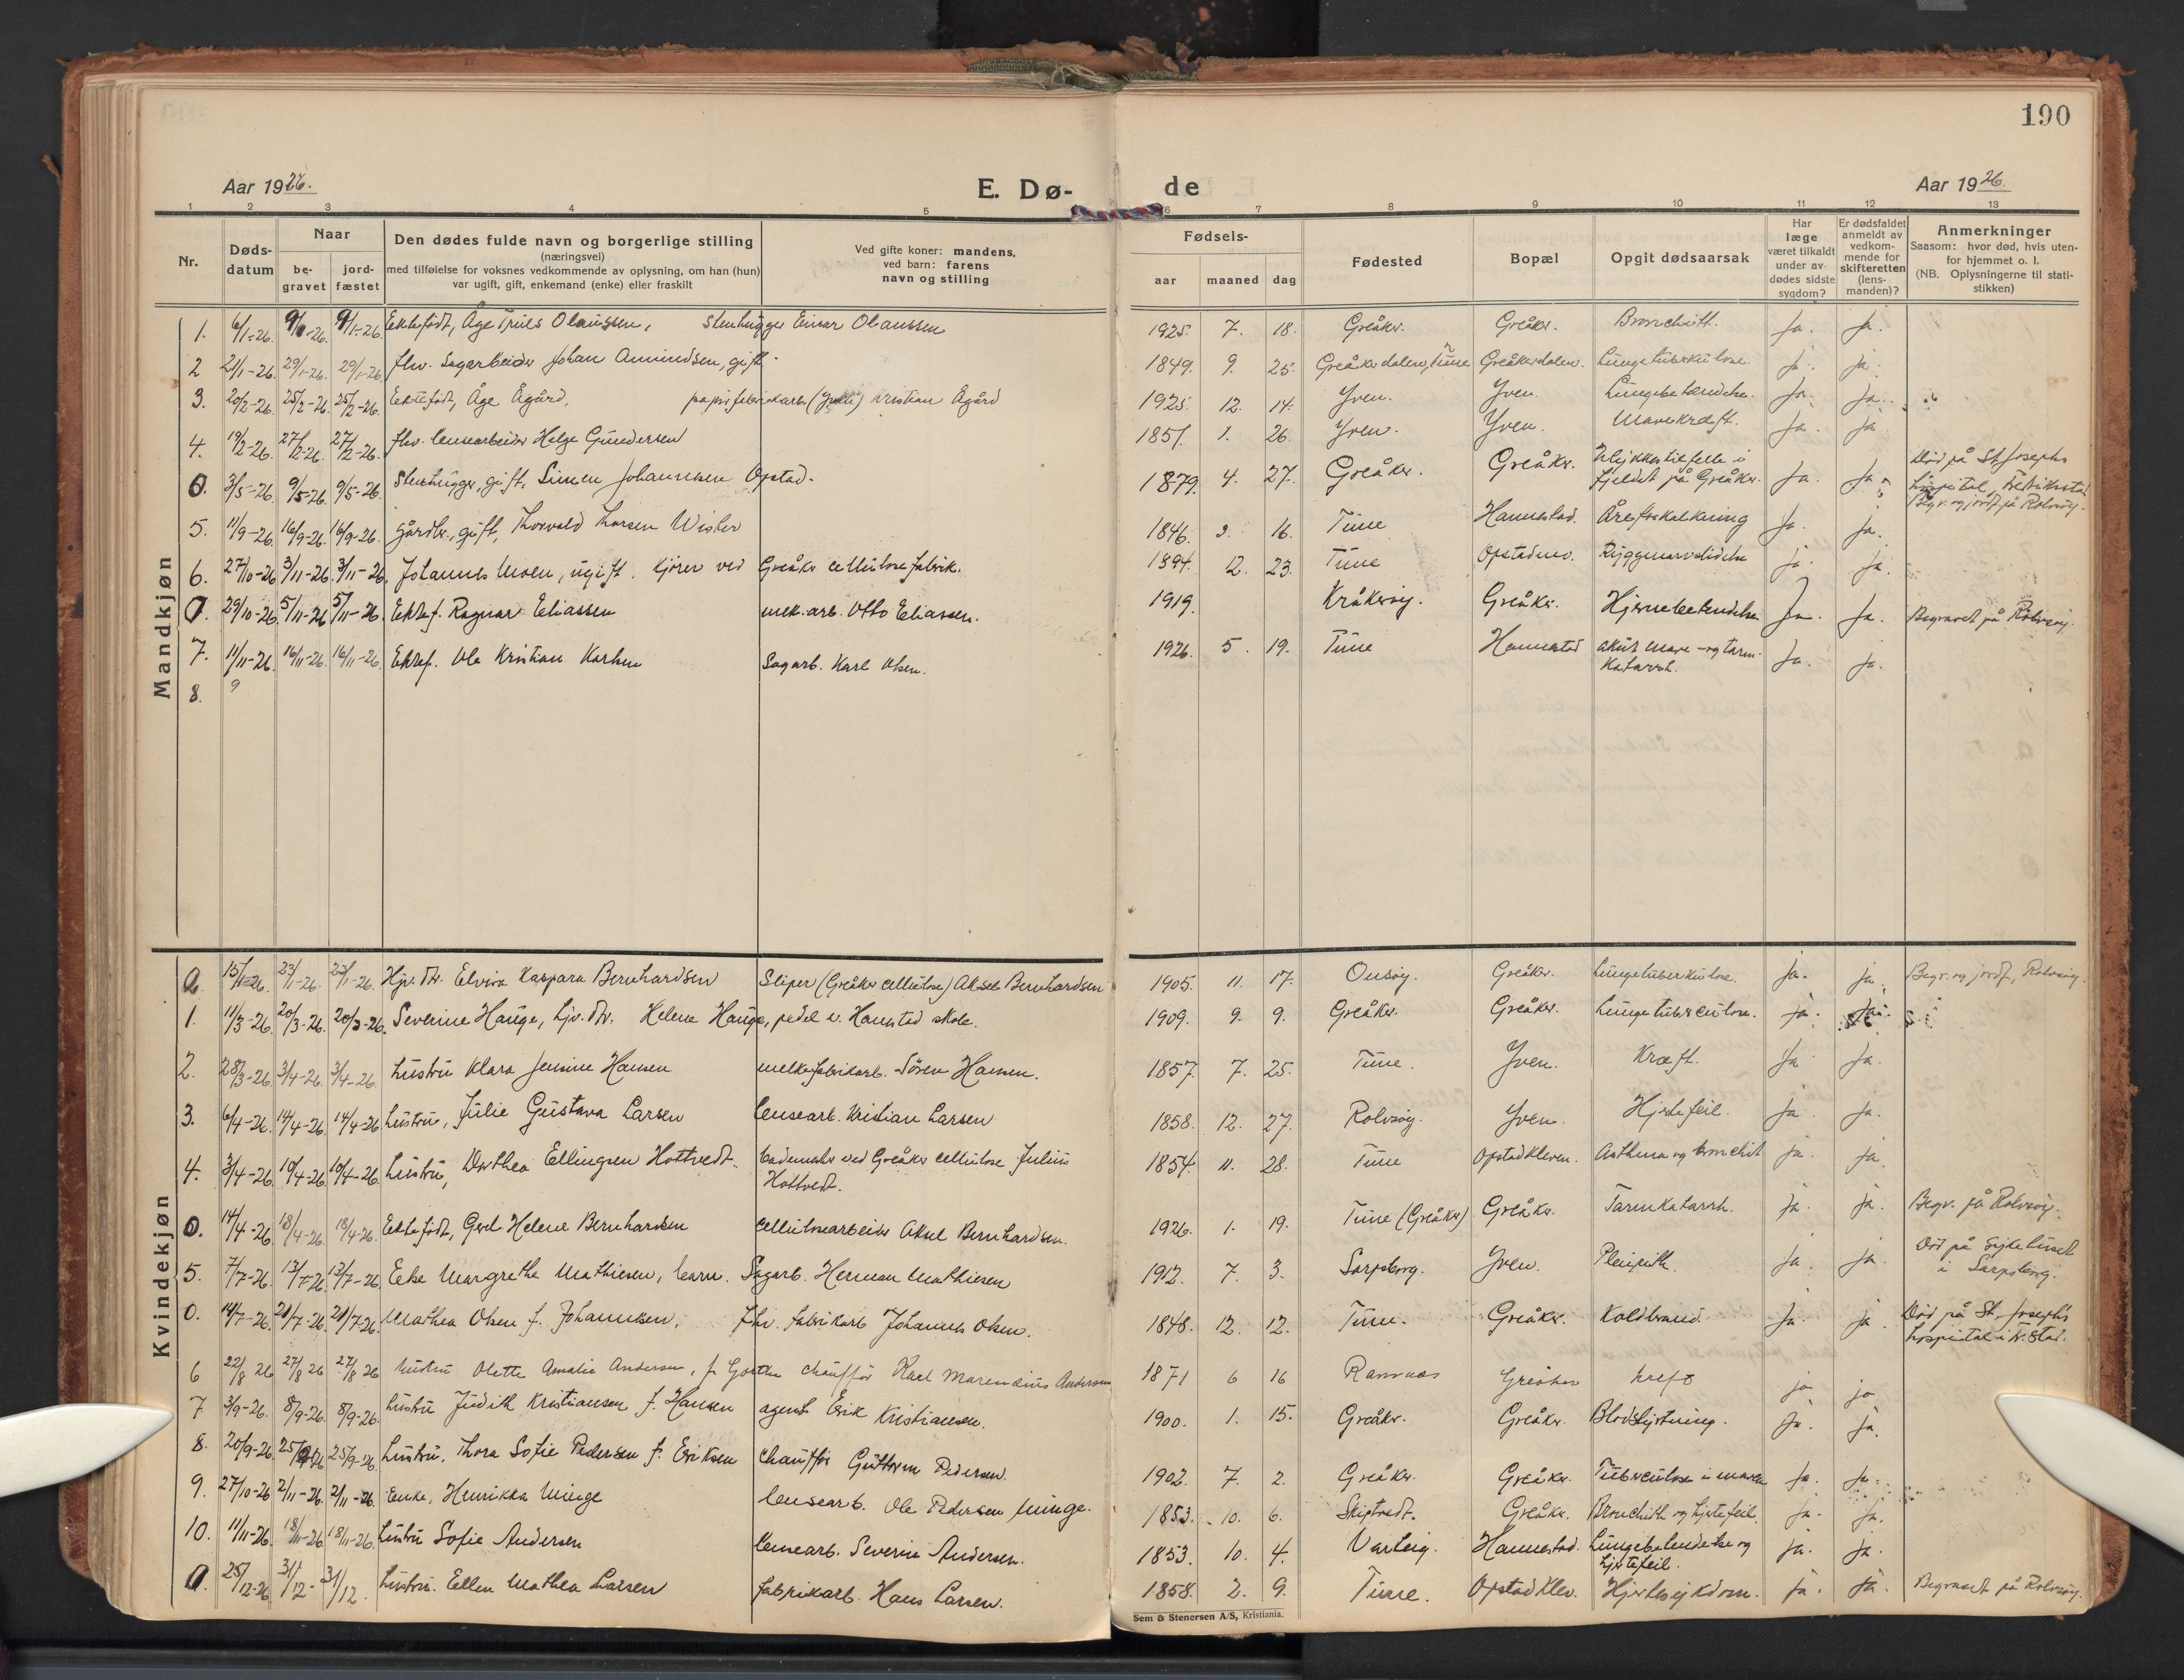 190
Aar 1926.
E. Dø-
de
Aar 1926.
1 2 3 4 5 6 7 8 9 10 11 12 13
Nr.
Døds-
datum
Naar
be-
gravet
jord-
fæstet
Den dødes fulde navn og borgerlige stilling
(næringsvei)
med tilføielse for voksnes vedkommende av oplysning, om han (hun)
var ugift, gift, enkemand (enke) eller fraskilt
Ved gifte koner: mandens,
ved barn: farens
navn og stilling
Fødsels-
aar maaned dag
Fødested
Bopæl
Opgit dødsaarsak
Har
læge
været tilkaldt
under av-
dødes sidste
sygdom?
Er dødsfaldet
anmeldt av
vedkom-
mende for
skifteretten
(lens-
manden)?
Anmerkninger
Saasom: hvor død, hvis uten-
for hjemmet o. l.
(NB. Oplysningerne til stati-
stikken)
Mandkjøn
1. 6/1-26. 9/1-26. 9/1-26. Ektefødt, Åge Truls Olaussen, Stenhugger Einar Olaussen 1925. 7. 18. Greåker. Greåker. Bronchitt. Ja. Ja.
2 21/1-26. 29/1-26. 29/1-26. fhv. Sagarbeider Johan Amundsen, gift. 1849. 9. 25. Greåkerdalen, Tune Greåkerdalen. Lungetuberkulose. Ja. ja.
3. 20/2-26. 25/2-26. 25/2-26. Ektefødt, Åge Ågård, papirfabrikarb. Kristian Ågård 1925. 12. 14. Yven. Yven. Lungebetændelse. Ja. Ja.
4. 19/2-26. 27/2-26. 27/2-26. fhv. lensearbeider Helge Gundersen 1851. 1. 26. Yven. Yven. Mavekræft. Ja. Ja.
0. 3/5-26. 9/5-26. 9/5-26. Stenhugger, gift, Simen Johannesen Opstad. 1879. 4. 27. Greåker. Greåker. Ulykkestilfelle i
fjeldet på Greåker. Ja. Ja. Død på St. Josephs
hospital, Fredriksstad
Begr. og jordf. på Rolvsøy.
5. 11/9-26. 16/9-26. 16/9-26. Gårdbr., gift, Thorvald Larsen Wister 1846. 16. Tune Hannestad. Åreforkalkning Ja. Ja.
6. 27/10-26. 3/11-26. 3/11-26. Johannes Moen, ugift. Kjører ved Greåker cellulosefabrik. 1894. 12. 23. Tune Opstadmo. Ryggmarvslidelse Ja. Ja.
0. 29/10-26. 5/11-26. 5/11-26. Ektef. Ragnar Eliassen mek.arb. Otto Eliassen. 1919. Kråkerøy. Greåker. Hjernebetendelse Ja. Ja. Begravet på Rolvsøy.
7. 11/11-26. 16/11-26. 16/11-26. Ektef. Ole Kristian Karlsen Sagarb. Karl Olsen. 1926. 5. 19. Tune Hannestad akut mave- og tarm-
katarrh. Ja. Ja.
8.
Kvindekjøn
0. 15/1-26. 23/1-26. 23/1-26. Hjv. dtr. Elvira Kaspara Bernhardsen Sliper (Greåker cellulose) Aksel Bernhardsen 1905. 11. 17. Onsøy. Greåker. Lungetuberkulose. Ja. ja. Begr. og jordf., Rolvsøy.
1. 11/3-26. 20/3-26. 20/3-26. Severine Hauge, hjv. dtr. Helene Hauge, pedel v. Hanstad skole. 1909. 9. 9. Greåker. Greåker. Lungetuberculose. ja. ja.
2. 28/3-26. 3/4-26. 3/4-26. hustru Klara Jensine Hansen melkefabrikarb. Sören Hansen. 1857. 7. 25. Tune. Yven. Kræft. Ja Ja.
3. 6/4-26. 14/4-26. 14/4-26. hustru, Julie Gustava Larsen lensearb. Kristian Larsen 1858. 12. 27. Rolvsøy. Yven. Hjertefeil. Ja Ja.
4. 3/4-26. 10/4-26. 10/4-26. hustru, Dorthea Ellingsen Hottvedt. bademester ved Greåker cellulose Julius
Hottvedt. 1854. 11. 28. Tune Opstadkleven. Asthma og bronchit ja. ja.
0. 14/4-26. 18/4-26. 18/4-26. Ektefødt, Gerd Helene Bernhardsen cellulosearbeider Aksel Bernhardsen. 1926. 1. 19. Tune (Greåker) Greåker. Tarmkatarrh. ja. ja. Begr. på Rolvsøy.
5. 7/7-26. 13/7-26. 13/7-26. Eeke Margrethe Mathiesen, barn. Sagarb. Herman Mathiesen 1912. 7. 3. Sarpsborg. Yven. Pleuritt. Ja. Ja. Død på sykehuset
i Sarpsborg.
0. 14/7-26. 21/7-26. 21/7-26. Mathea Olsen f. Johannesen. Fhv. fabrikarb Johannes Olsen. 1848. 12. 12. Tune. Greåker. Koldbrand. Ja. ja Død på St. Joseph's
hospital i Fr.stad.
6 22/8 26 27/8 26 27/8 26 hustru Olette Amalie Andersen, f. chauffør Karl Marendius Andersen 1871 6 16 Ramnæs Greåker kreft ja ja
7 3/9-26. 8/9-26. 8/9-26. hustru Judith Kristiansen f. Hansen agent Erik Kristiansen. 1900. 1. 15. Greåker. Greåker. Blodstyrtning. Ja. Ja.
8. 20/9-26. 25/9-26. 25/9-26. hustru. Thora Sofie Pedersen f. Eriksen chauffør Guttorm Pedersen. 1902. 7. 2. Greåker. Greåker. Tuberculose i maven Ja. Ja.
9. 27/10-26. 2/11-26. 2/11-26. Enke, Henrikka Minge lensearb. Ole Pedersen Minge. 1853. 10. 6. Skiptvedt. Greåker. Bronchitt og hjertefeil. Ja. Ja.
10. 11/11-26. 18/11-26. 18/11-26. hustru Sofie Andersen lensearb. Severin Andersen. 1853. 10. 4. Varteig. Hannestad. Lungebetendelse og
hjertefeil. ja. ja.
0. 25/12-26. 31/12- 31/12. hustru. Ellen Mathea Larsen fabrikarb. Hans Larsen. 1858. 2. 9. Tune. Opstadklev. Hjertesykdom. ja. ja. Begravet på Rolvsøy.
Sem & Stenersen A/S, Kristiania.